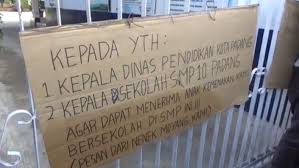 KEPADA YTH:
1 KEPALA DINAS PENDIDIKAN KOTA PADANG
2 KEPALA SEKOLAH SMP 10 PADANG
AGAR DAPAT MENERIMA ANAK KEMENAKAN KAMI
BERSEKOLAH DI SMP INI!!!
(PESAN DARI NENEK MOYANG KAMI)